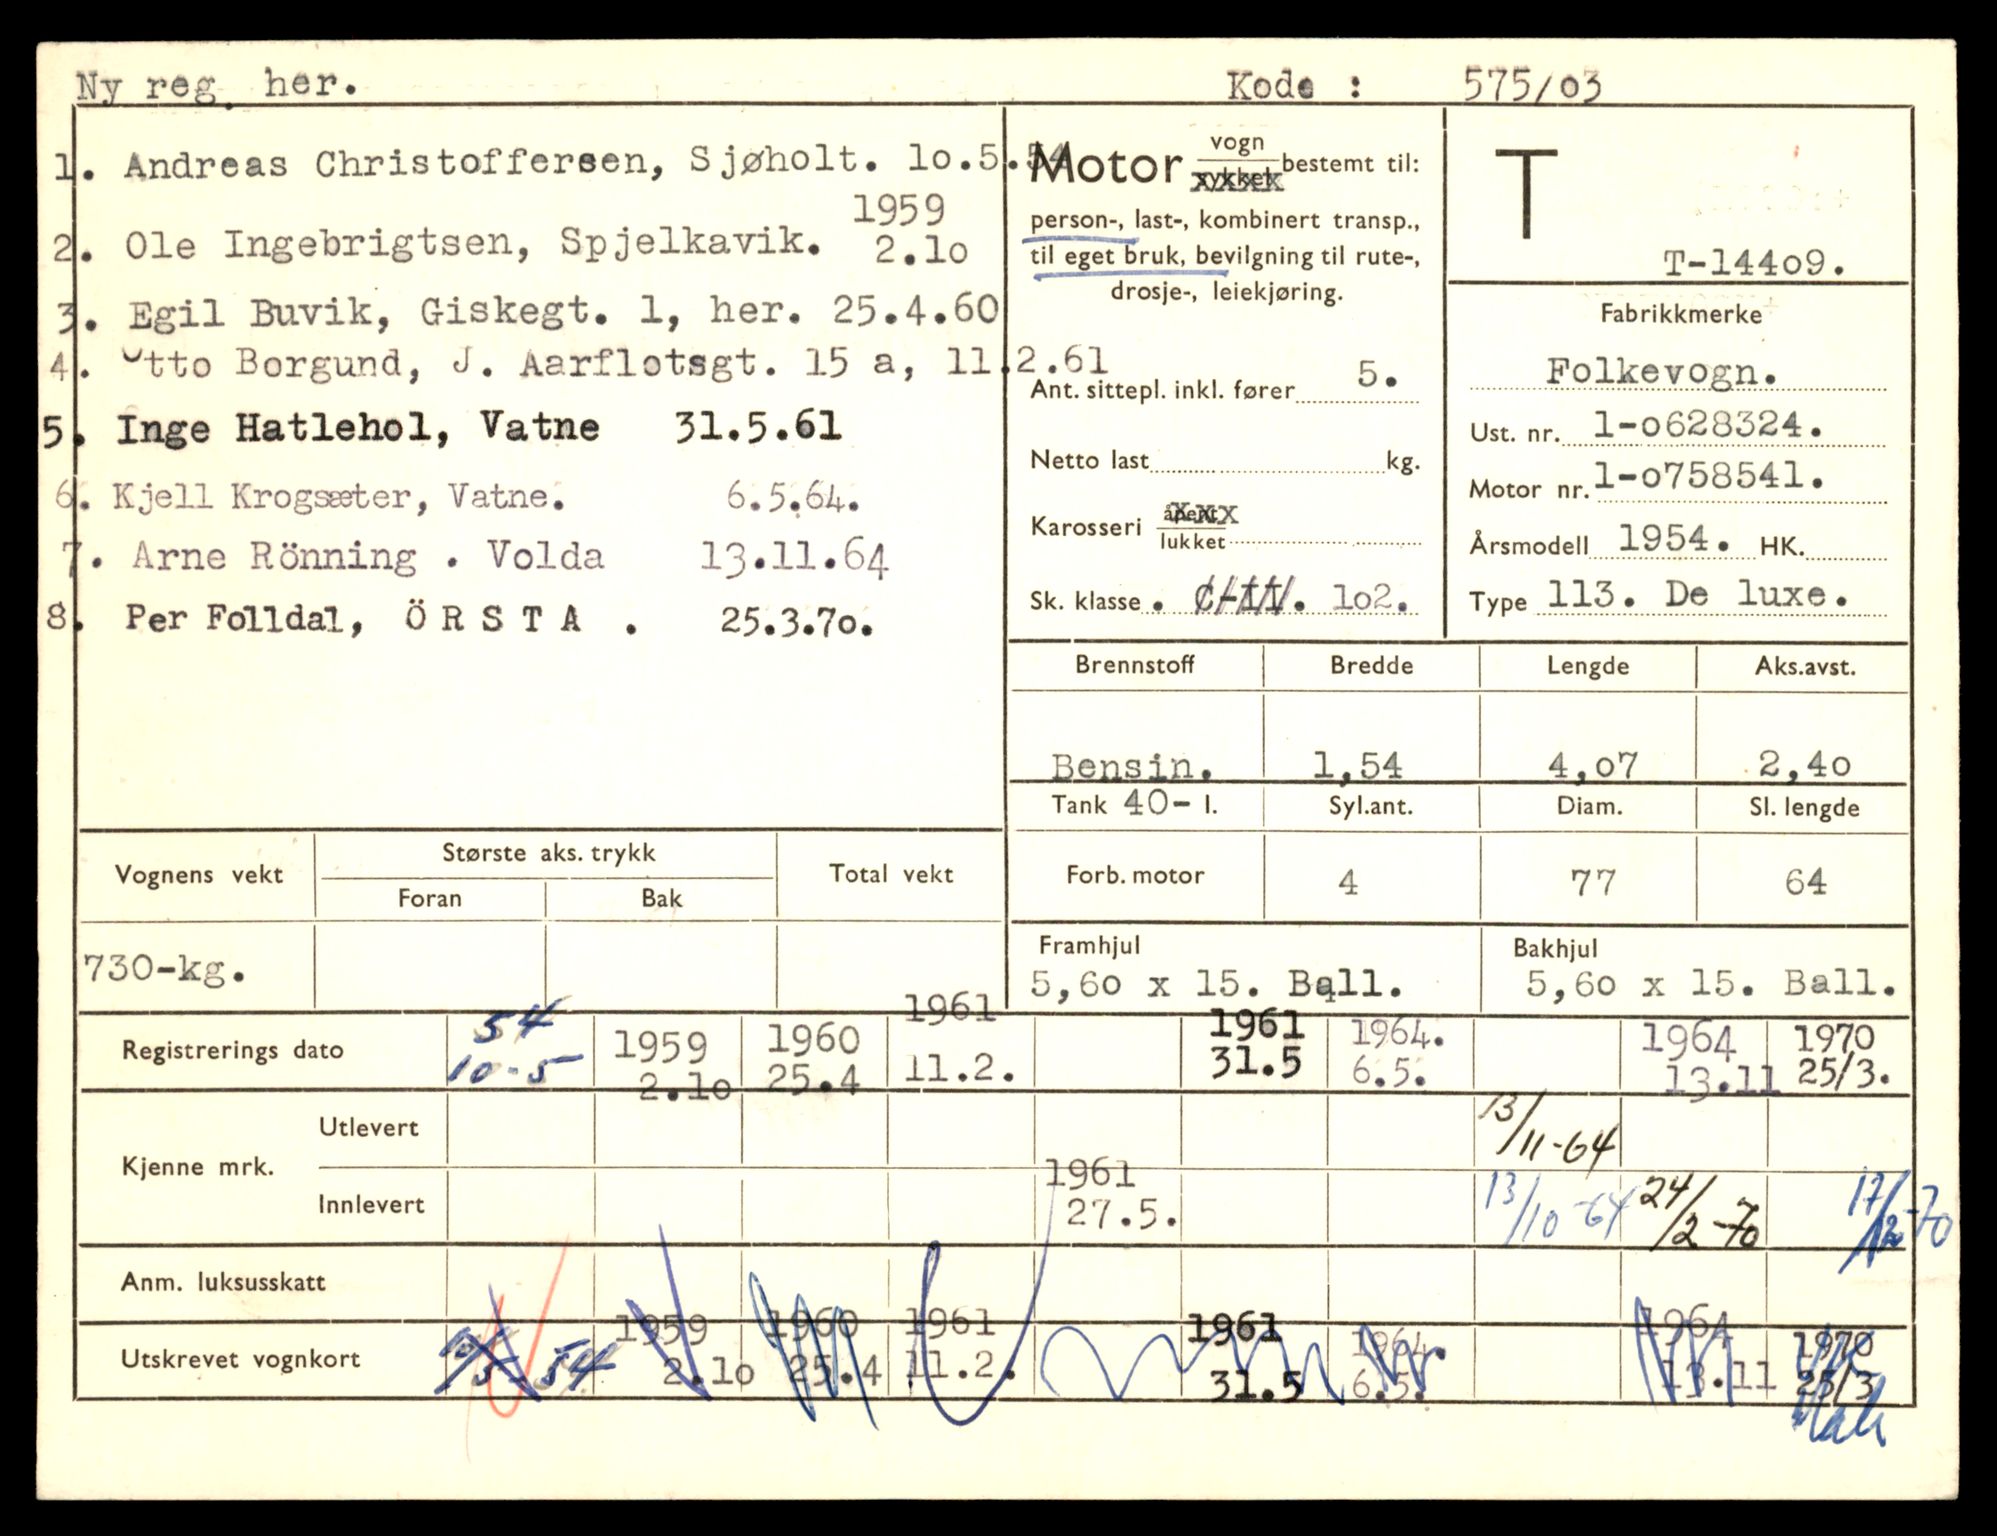 Ny reg. her.
Kode : 575/03
1. Andreas Christoffersen, Sjøholt. 1o.5.54
1959
2. Ole Ingebrigtsen, Spjelkavik. 2.1o
3. Egil Buvik, Giskegt. 1, her. 25.4.60
4. Otto Borgund, J. Aarflotsgt. 15 a, 11.2.61
5. Inge Hatlehol, Vatne 31.5.61
6. Kjell Krogsæter, Vatne. 6.5.64.
7. Arne Rönning . Volda 13.11.64
8. Per Folldal, ÖRSTA . 25.3.7o.
Motor vogn sykkel bestemt til:
person-, last-, kombinert transp.,
til eget bruk, bevilgning til rute-,
drosje-, leiekjøring.
Ant. sittepl. inkl. fører 5.
Netto last kg.
Karosseri åpent lukket
Sk. klasse . C-II. 1o2.
T
T-144o9.
Fabrikkmerke
Folkevogn.
Ust. nr. 1-o628324.
Motor nr. 1-o758541.
Årsmodell 1954. HK.
Type 113. De luxe.
Brennstoff Bredde Lengde Aks.avst.
Bensin. 1,54 4,o7 2,4o
Tank 40- l. Syl.ant. Diam. Sl. lengde
Forb. motor 4 77 64
Framhjul Bakhjul
5,6o x 15. Ball. 5,6o x 15. Ball.
Vognens vekt Største aks. trykk Total vekt
Foran Bak
730-kg.
Registrerings dato 54 1959 1960 1961 1961 1964. 1964 1970
10-5 2.1o 25.4 11.2. 31.5 6.5. 13.11 25/3.
Kjenne mrk.
Utlevert 13/11-64
Innlevert 1961 27.5. 13/10-64 24/2-70 17/12-70
Anm. luksusskatt
Utskrevet vognkort 10/5-54 1959 1960 1961 1961 1964. 1964 1970
2.1o 25.4 11.2. 31.5 6.5. 13.11 25/3